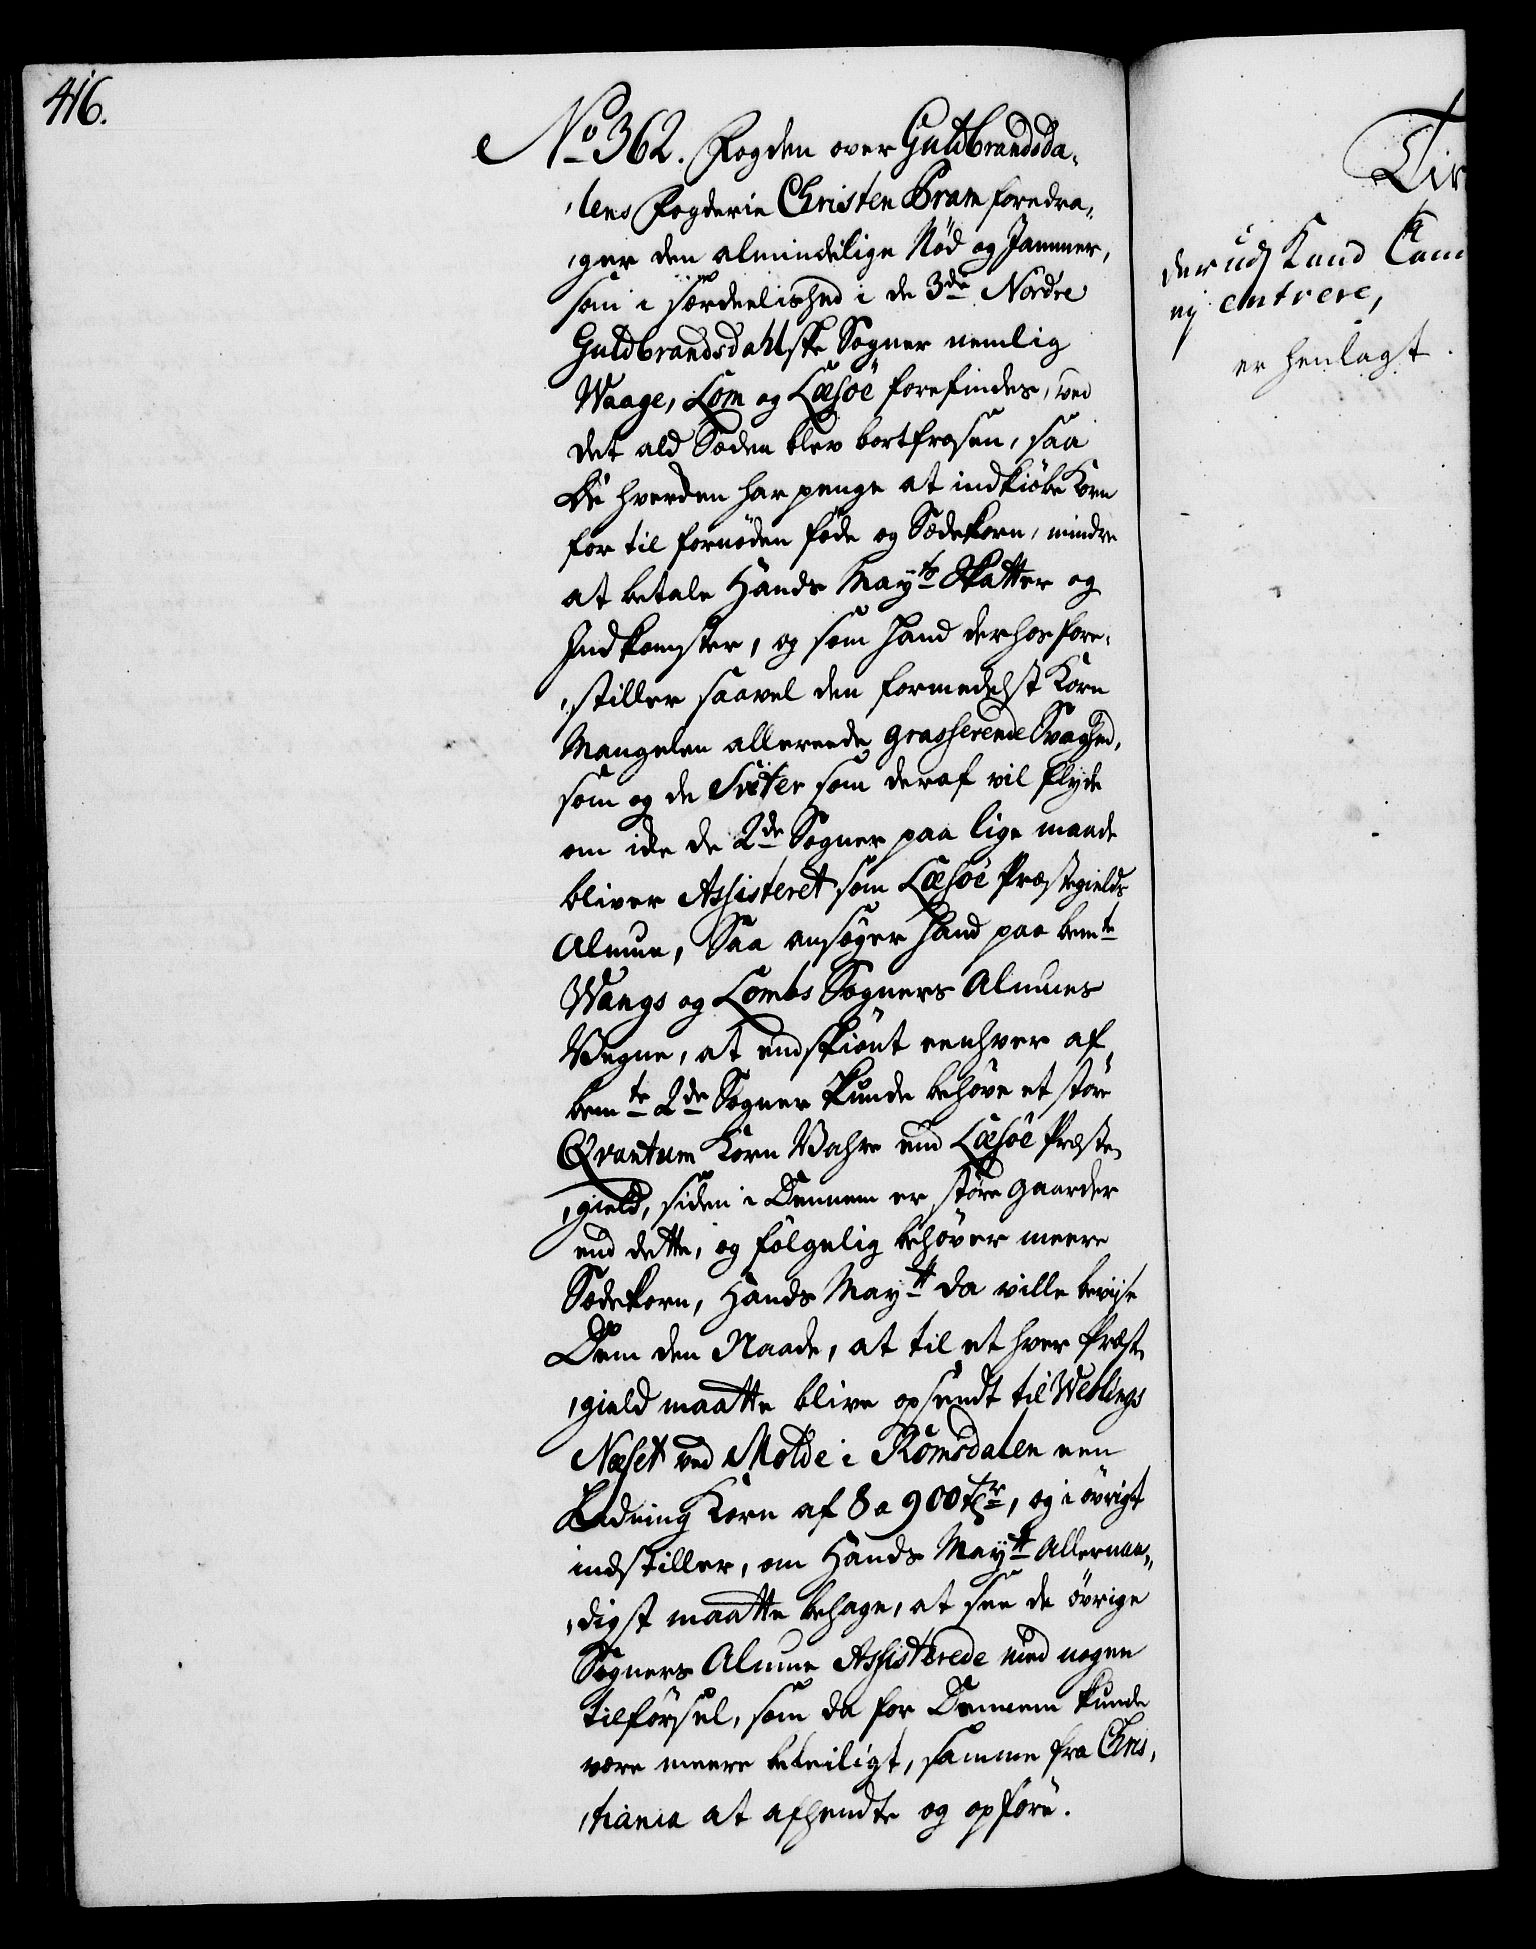 416.
No 362. Fogden over Guldbrandsda-
lens Fogderie Christen Pram foredra-
ger den almindelige Nöd og Jammer,
som i særdeelished i de 3de Nordre
Guldbrandsdahlske Sogner nemlig
Waage, Lom og Læsöe forefindes, ved
det ald Sæden blev bortfrosen, saa
De hverden har penge at indkiöbe Korn
for til fornöden föde og Sædekorn, mindre
at betale Hands Mayts Skatter og
Indkomster, og som hand derhos fore-
stiller saavel den formedelst Korn
Mangelen allereede grasserende Svaghed,
som og de Sviter som deraf vil flyde
om icke de 2de Sogner paa lige maade
bliver Assisteret som Læsöe Præstegields
Almue, Saa ansöger hand paa bemte
Wangs og Lombs Sogners Almues
Vegne, at endskiönt eenhver af
bemte 2de Sogner kunde behöve et störe
Qvantum Korn Vahre end Læsöe Præste-
gield, siden i Dennem er störe gaarder
end dette, og fölgelig behöver meere
Sædekorn, Hands Maytt da ville beviise
Dem den Naade, at til et hver Præste-
gield maatte blive opsendt til Weblings
Næset ved Molde i Romsdalen een
Ladning Korn af 8 a 900 tr, og i övrigt
indstiller, om Hands Maytt Allernaa-
digst maatte behage, at see de övrige
Sogners Almue Assisterede med nogen
tilförsel, som da for Dennem kunde
være meere beleiligt, samme fra Chris-
tiania at afhendte og opföre.
der udj Kand Cam
ej entrere,
er henlagt.